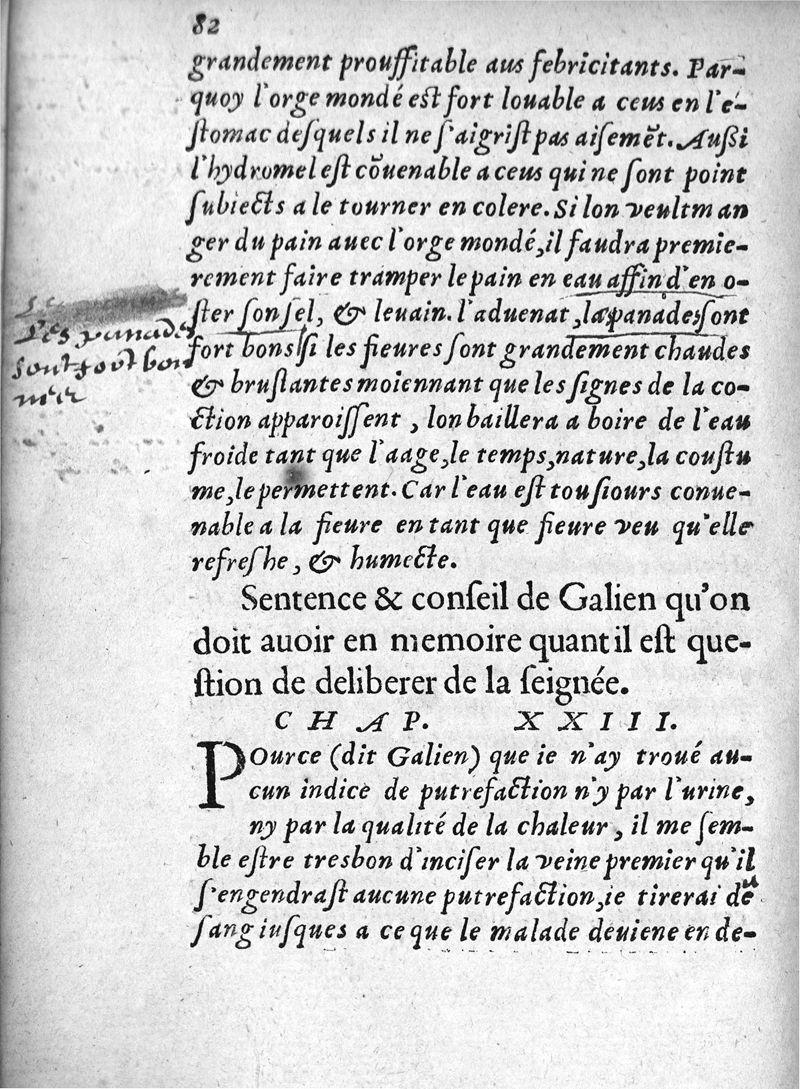 82
grandement prouffitable aus febricitants. Par-
quoy l'orge mondé est fort louable a ceus en l'e-
ſtomac deſquels il ne ſ'aigriſt pas aiſemēt. Außi
l'hydromel eſt cōuenable a ceus qui ne ſont point
ſubiects a le tourner en colere. Si lon veult man
ger du pain auec l'orge mondé, il faudra premie-
rement faire tramper le pain en eau affin d'en o-
ſter ſon ſel, & leuain. l'aduenat, la panades ſont
Les panades
sont fort bon
fort bons ſi les fieures ſont grandement chaudes
& bruſlantes moiennant que les ſignes de la co-
ction apparoiſſent, lon baillera a boire de l'eau
froide tant que l'aage, le temps, nature, la couſtu
me, le permettent. Car l'eau eſt touſiours conue-
nable a la fieure en tant que fieure veu qu'elle
refreſhe, & humecte.
Sentence & conſeil de Galien qu'on
doit auoir en memoire quant il eſt que-
ſtion de deliberer de la ſeignée.
CHAP. XXIII.
POurce (dit Galien) que ie n'ay troué au-
cun indice de putrefaction n'y par l'urine,
ny par la qualité de la chaleur, il me ſem-
ble eſtre tresbon d'inciſer la veine premier qu'il
ſ'engendraſt aucune putrefaction, ie tirerai de
ſang iuſques a ce que le malade deuiene en de-